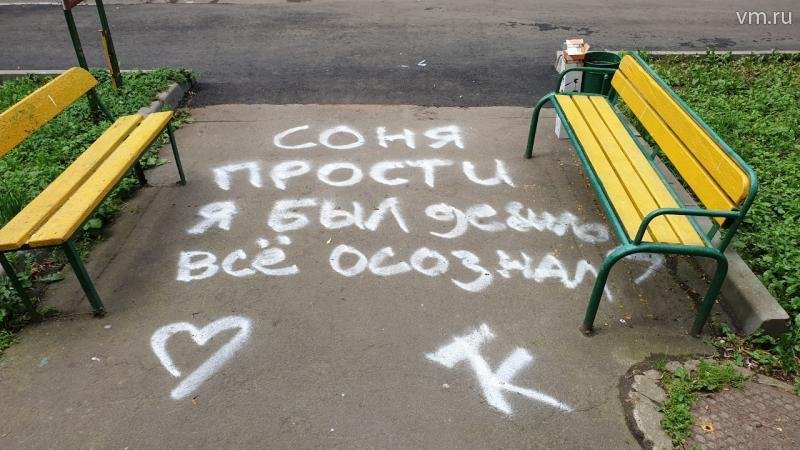 vm.ru
СОНЯ
ПРОСТИ
Я БЫЛ
ВСЁ ОСОЗНАЛ
К